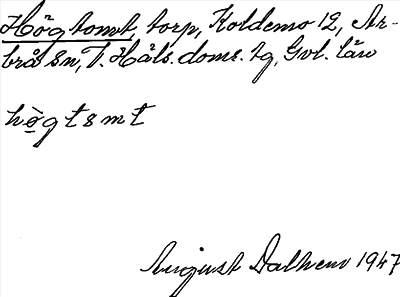 Högtomt, torp, Koldemo 12, Ar-
brå sn, T. Häls. doms. tg, Gvl. län
högtsmt
August Dalhem 1947